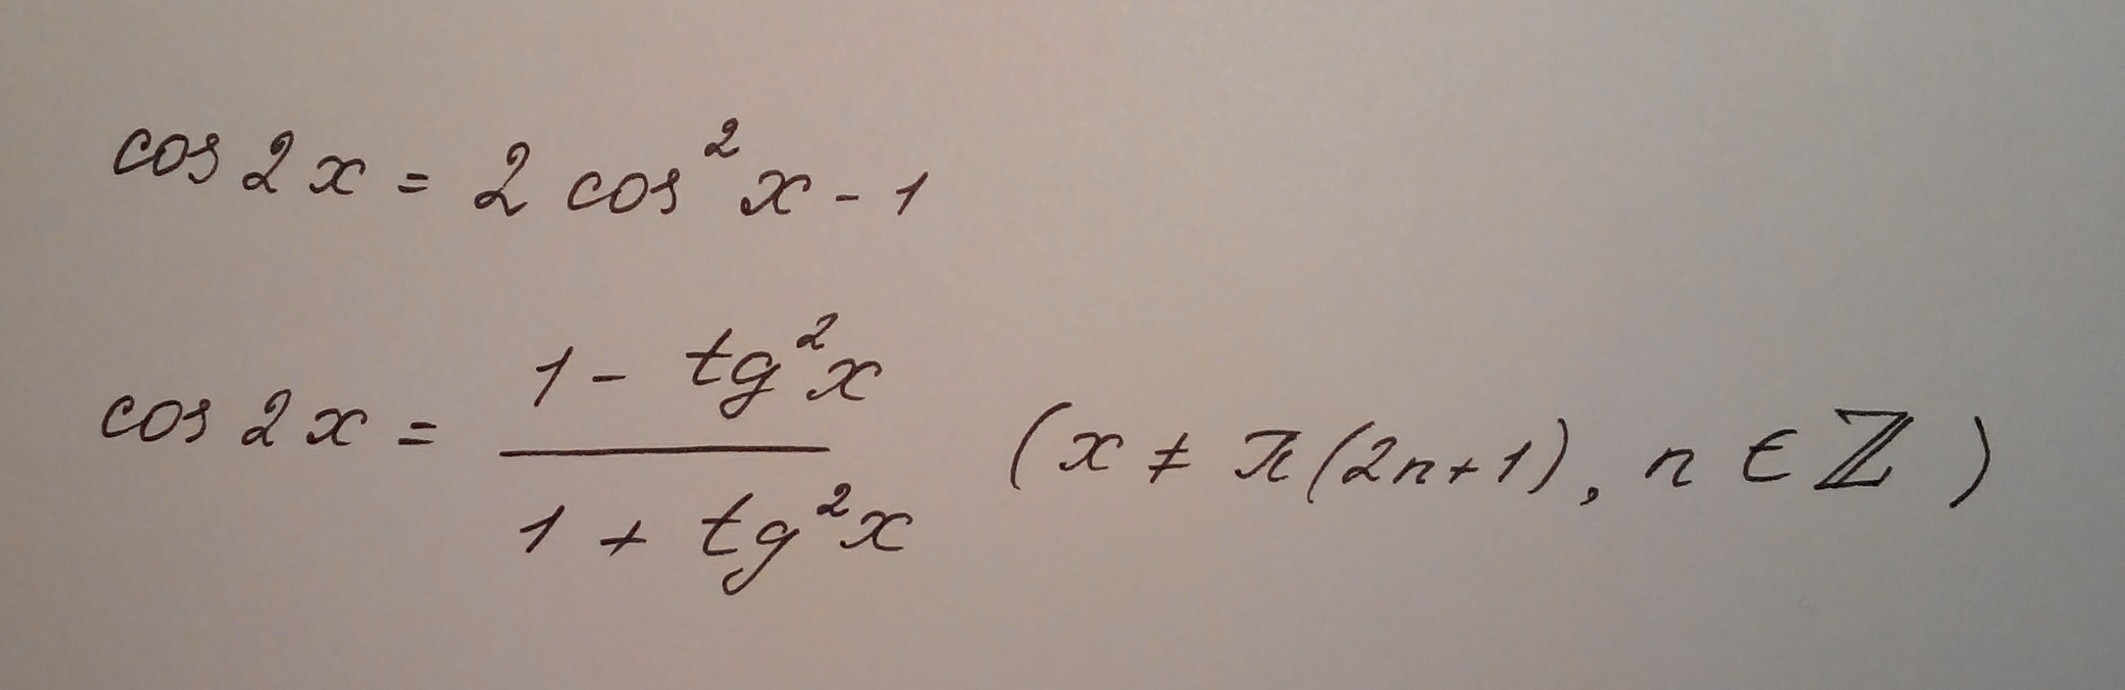 cos 2x = 2 cos²x - 1
cos 2x = (1 - tg²x)/(1 + tg²x) (x ≠ π(2n+1), n ∈ ℤ)